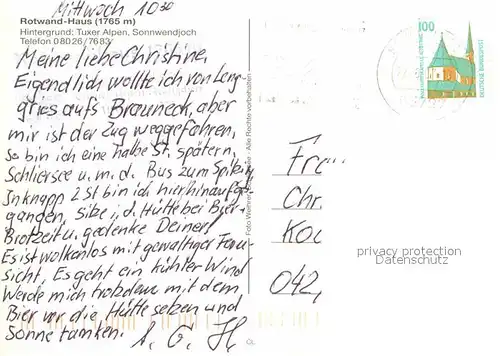 Mittwoch 10³⁰
Rotwand-Haus (1765 m)
Hintergrund: Tuxer Alpen, Sonnwendjoch
Telefon 0 80 26 / 76 83
Meine liebe Christine,
Eigendlich wollte ich von Leng-
gries aufs Brauneck, aber
mir ist der Zug weggefahren.
So bin ich eine halbe St. spätern,
Schliersee u. m. d. Bus zum Spitzing
In knapp 2 St bin ich hier hinaufge-
gangen, sitze i. d. Hütte bei Bier-
Brotzeit u. gedenke Deiner
Es ist wolkenlos mit gewaltiger Fern-
sicht. Es geht ein kühler Wind
Werde mich trotzdem mit dem
Bier vor die Hütte setzen und
Sonne tanken.
Alle Rechte vorbehalten
100
DEUTSCHE BUNDESPOST
Fra
Chr.
Koc
042,
privacy protection
Datenschutz